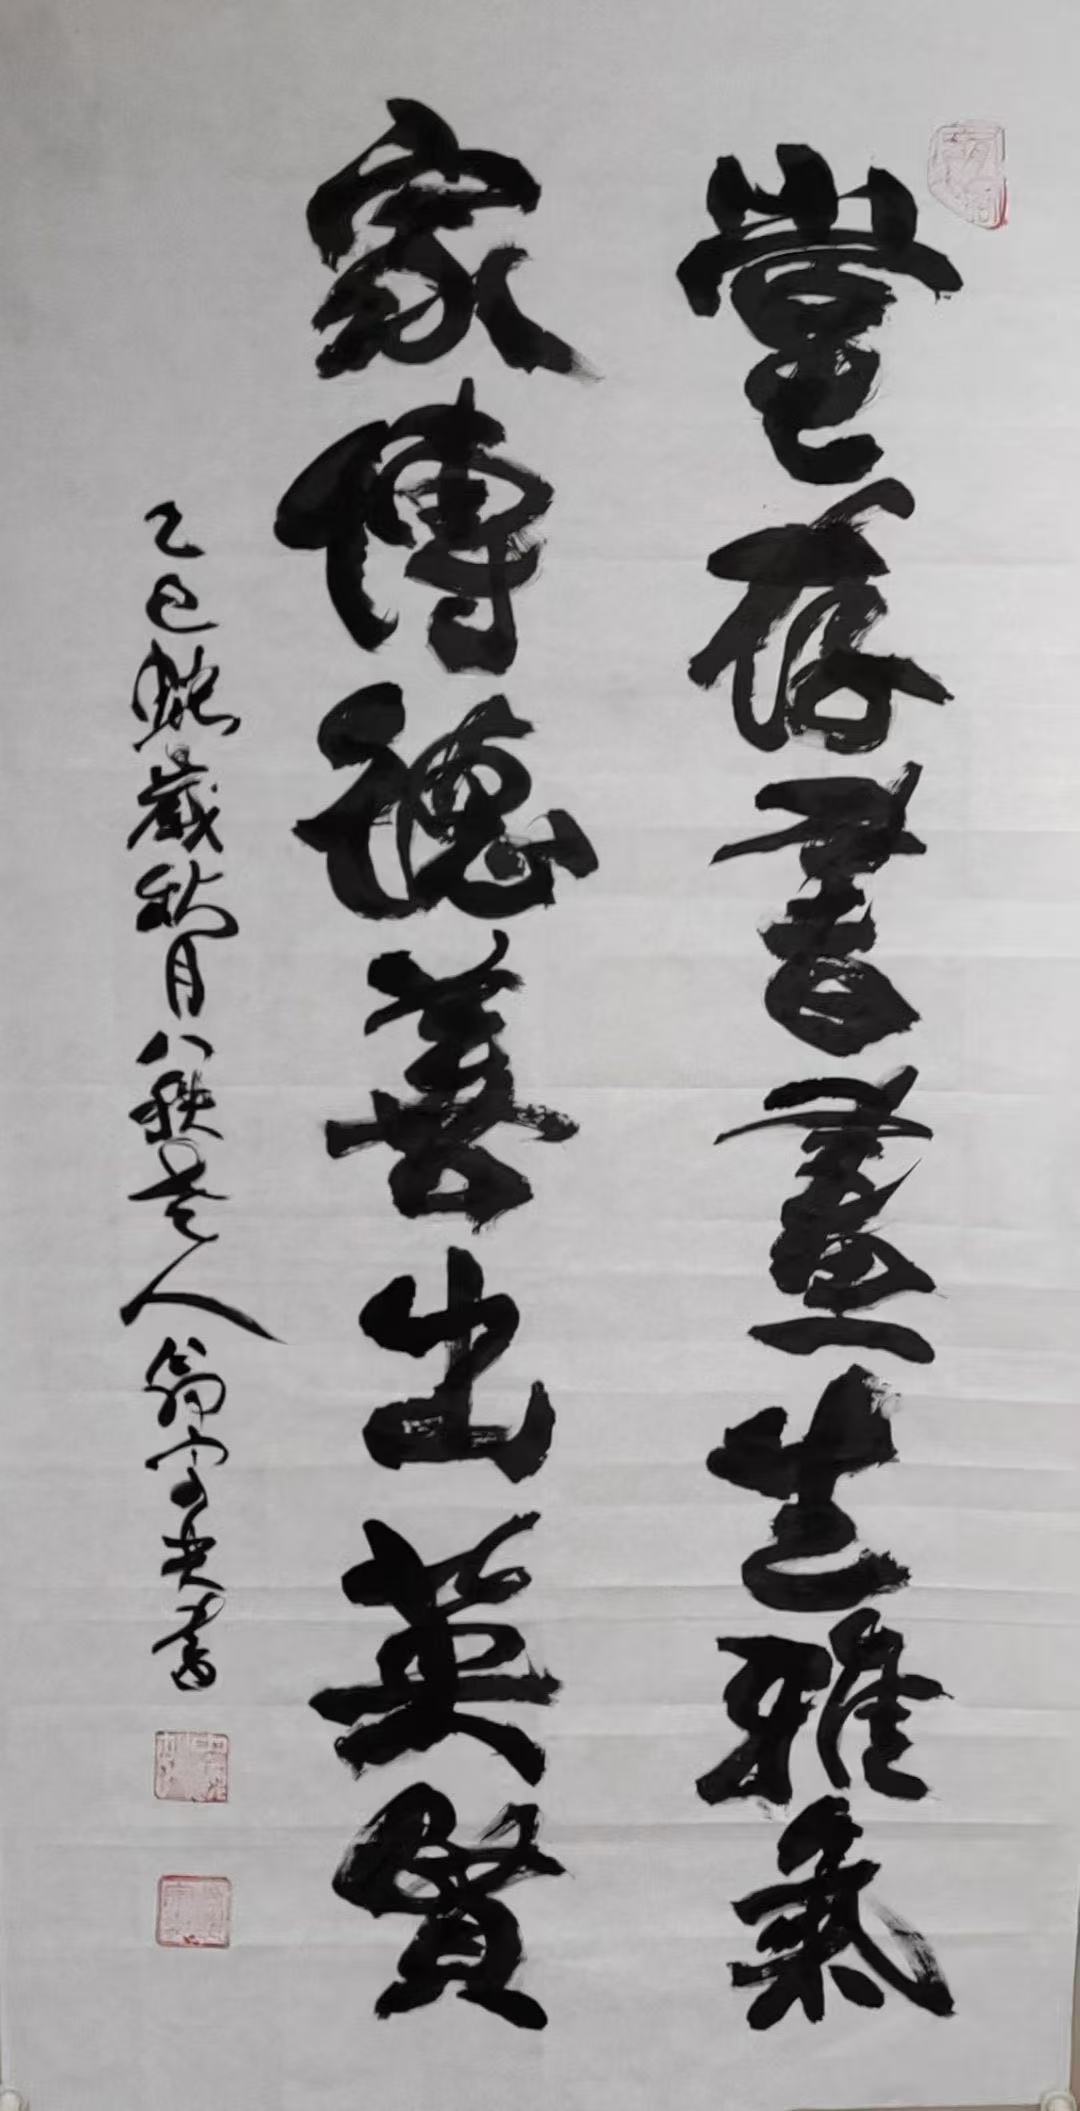 堂存書畫生雅氣
家傳德善出英賢
乙巳蛇歲秋月八秩老人翁字央書